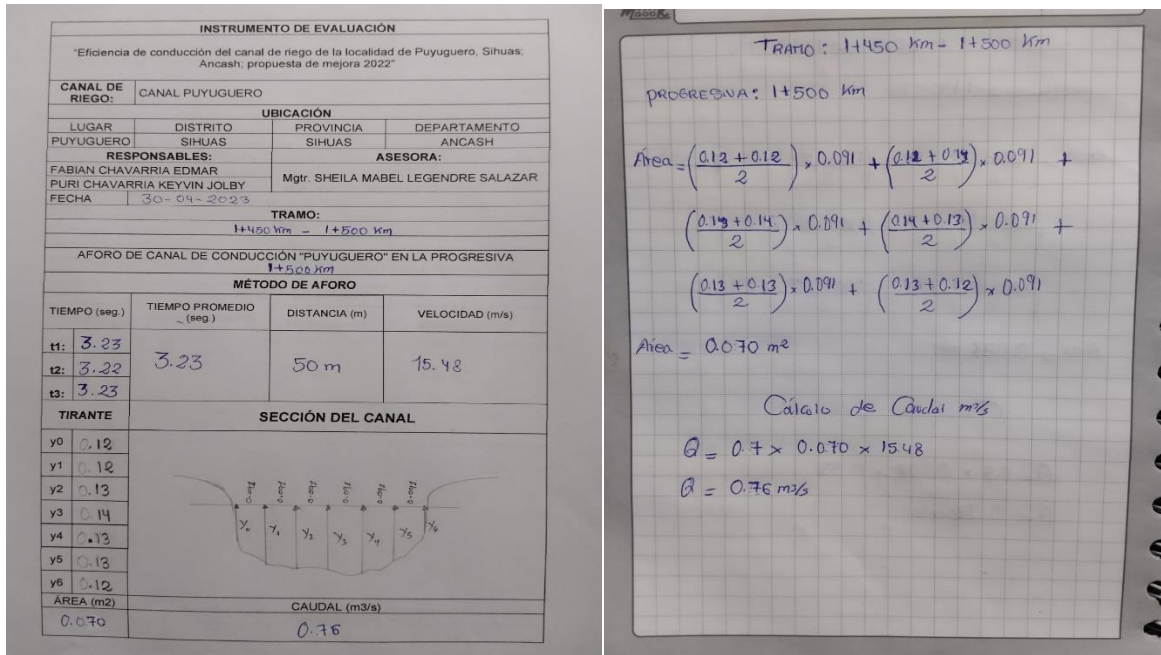 INSTRUMENTO DE EVALUACIÓN
"Eficiencia de conducción del canal de riego de la localidad de Puyuguero, Sihuas;
Ancash; propuesta de mejora 2022"
CANAL DE RIEGO: CANAL PUYUGUERO
UBICACIÓN
LUGAR DISTRITO PROVINCIA DEPARTAMENTO
PUYUGUERO SIHUAS SIHUAS ANCASH
RESPONSABLES: ASESORA:
FABIAN CHAVARRIA EDMAR
PURI CHAVARRIA KEYVIN JOLBY
Mgtr. SHEILA MABEL LEGENDRE SALAZAR
FECHA 30-04-2023
TRAMO:
1+450 Km - 1+500 Km
AFORO DE CANAL DE CONDUCCIÓN "PUYUGUERO" EN LA PROGRESIVA
1+500 Km
MÉTODO DE AFORO
TIEMPO (seg.) TIEMPO PROMEDIO (seg.) DISTANCIA (m) VELOCIDAD (m/s)
t1: 3.23
t2: 3.22
t3: 3.23
3.23 50 m 15.48
TIRANTE SECCIÓN DEL CANAL
y0 0.12
y1 0.12
y2 0.13
y3 0.14
y4 0.13
y5 0.13
y6 0.12
0.091 0.091 0.091 0.091 0.091 0.091
Y0 Y1 Y2 Y3 Y4 Y5 Y6
ÁREA (m2) CAUDAL (m3/s)
0.070 0.76
TRAMO: 1+450 Km - 1+500 Km
PROGRESIVA: 1+500 Km
Área = ((0.12 + 0.12)/2) × 0.091 + ((0.12 + 0.14)/2) × 0.091 +
((0.14 + 0.14)/2) × 0.091 + ((0.14 + 0.13)/2) × 0.091 +
((0.13 + 0.13)/2) × 0.091 + ((0.13 + 0.12)/2) × 0.091
Área = 0.070 m²
Cálculo de Caudal m³/s
Q = 0.7 × 0.070 × 15.48
Q = 0.76 m3/s